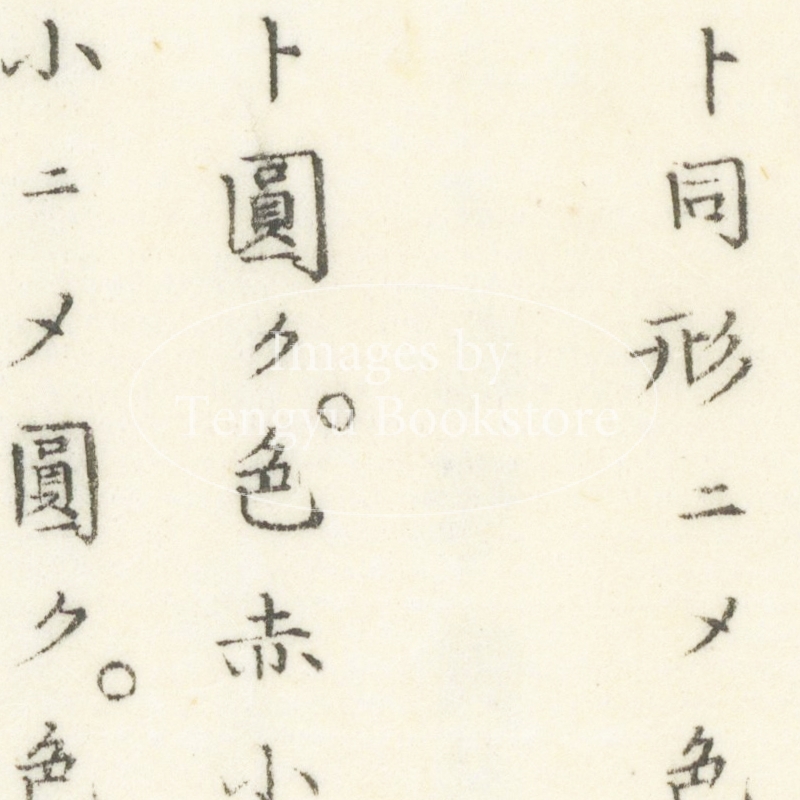 ト同形ニメ色
ト圓ク。色赤小
小ニメ圓ク。色
Images by
Tengyu Bookstore